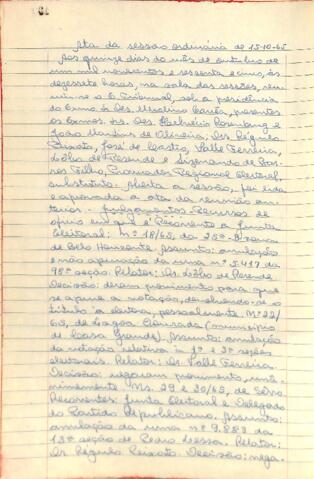 Ata da sessão ordinária de 15-10-65
Aos quinze dias do mês de outubro de
um mil novecentos e sessenta e cinco, às
dezessete horas, na sala das sessões, reu-
niu-se o E. Tribunal, sob a presidência
do Exmo. Sr. Des. presentes
os Exmos. Srs. Des. e
João Martins de Oliveira; Drs. Régulo
Peixoto, José de Castro, Valle Ferreira,
Lídio de Resende e de
Filho, Procurador Regional Eleitoral,
substituto. Aberta a sessão, foi lida
e aprovada a ata da reunião an-
terior. Julgamentos. Recursos de
ofício em que é Recorrente a Junta
Eleitoral: Nº 18/65, da 25ª
de Belo Horizonte. Assunto: anulação
e não apuração da urna nº 5.417 da
98ª seção. Relator: Dr. Lídio de Resende
Decisão: deram provimento para que
se apure a votação, devolvendo-se o
título a eleitora, pessoalmente. Nº 22/
65, de Lagoa Dourada (município
de Casa Grande). Assunto: anulação
da votação relativa à 1ª e 3ª seções
eleitorais. Relator: Dr. Valle Ferreira.
Decisão: negaram provimento, unâ-
nimemente. Ns. 29 e 30/65, de Serro.
Recorrentes: Junta Eleitoral e Delegado
do Partido Republicano. Assunto:
anulação da urna nº 9.883 da
13ª seção de Pedro Lessa. Relator:
Dr. Régulo Peixoto. Decisão: nega-